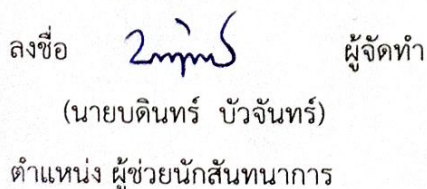 ลงชื่อ ผู้จัดทำ
(นายบดินทร์ บัวจันทร์)
ตำแหน่ง ผู้ช่วยนักสันทนาการ